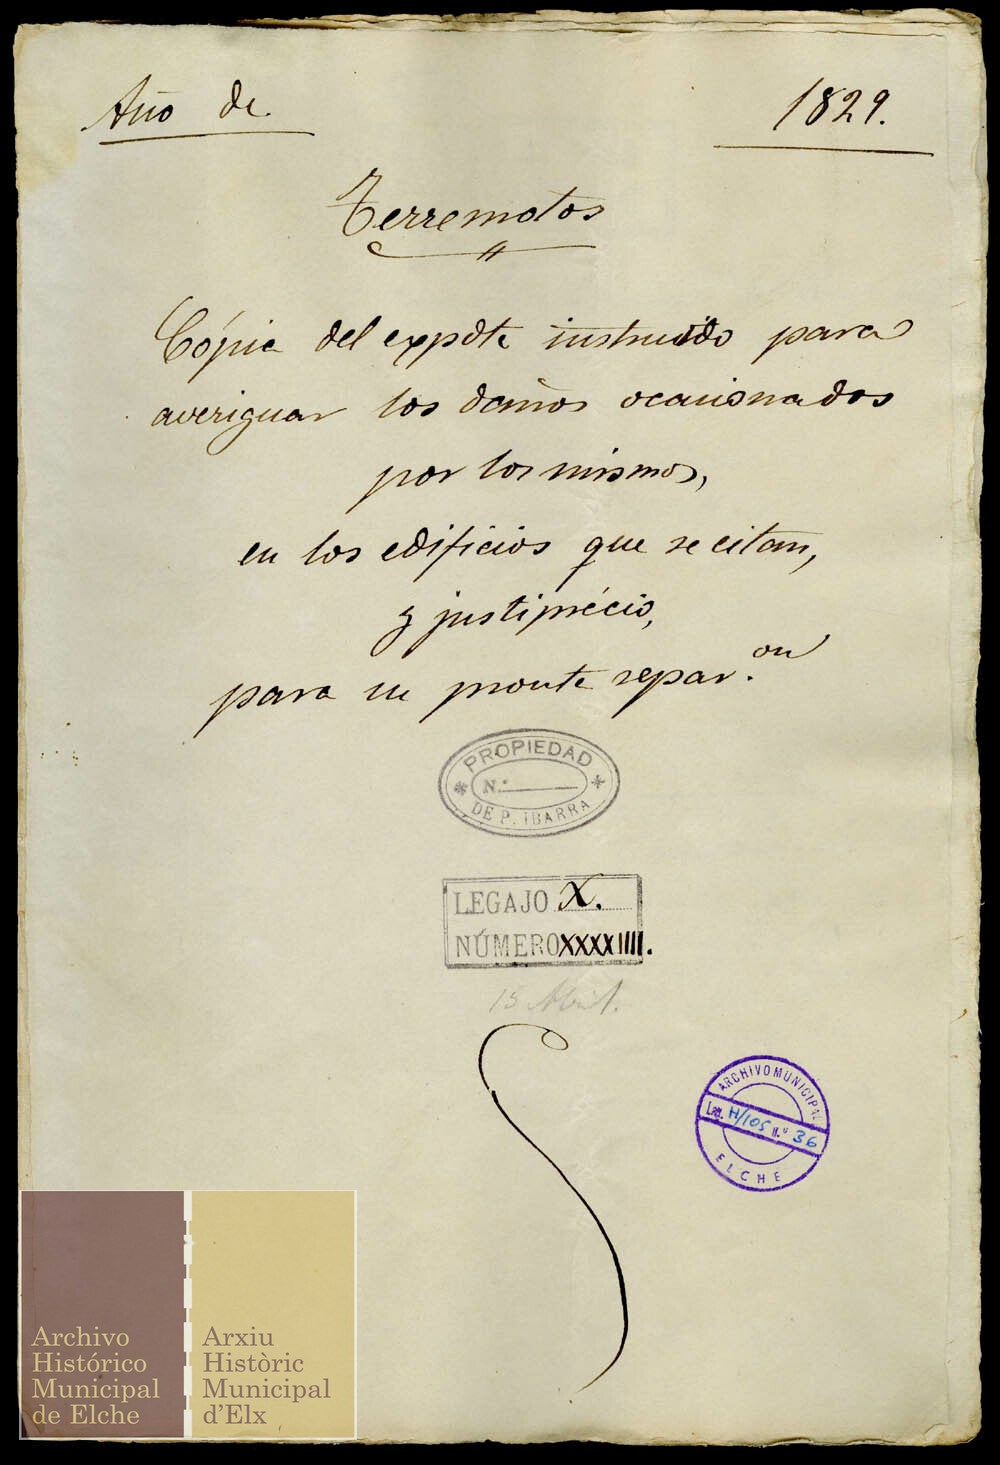 Año de 1829.
Terremotos
Cópia del expdte instruido para
averiguar los daños ocasionados
por los mismos,
en los edificios que se citan,
y justiprécio,
para su pronta reparon.
PROPIEDAD
N.º
DE P. IBARRA
LEGAJO X.
NÚMERO XXXXIIII.
15 Abril.
ARCHIVO MUNICIPAL
Leg. H/105 n.º 36
ELCHE
Archivo
Histórico
Municipal
de Elche
Arxiu
Històric
Municipal
d'Elx